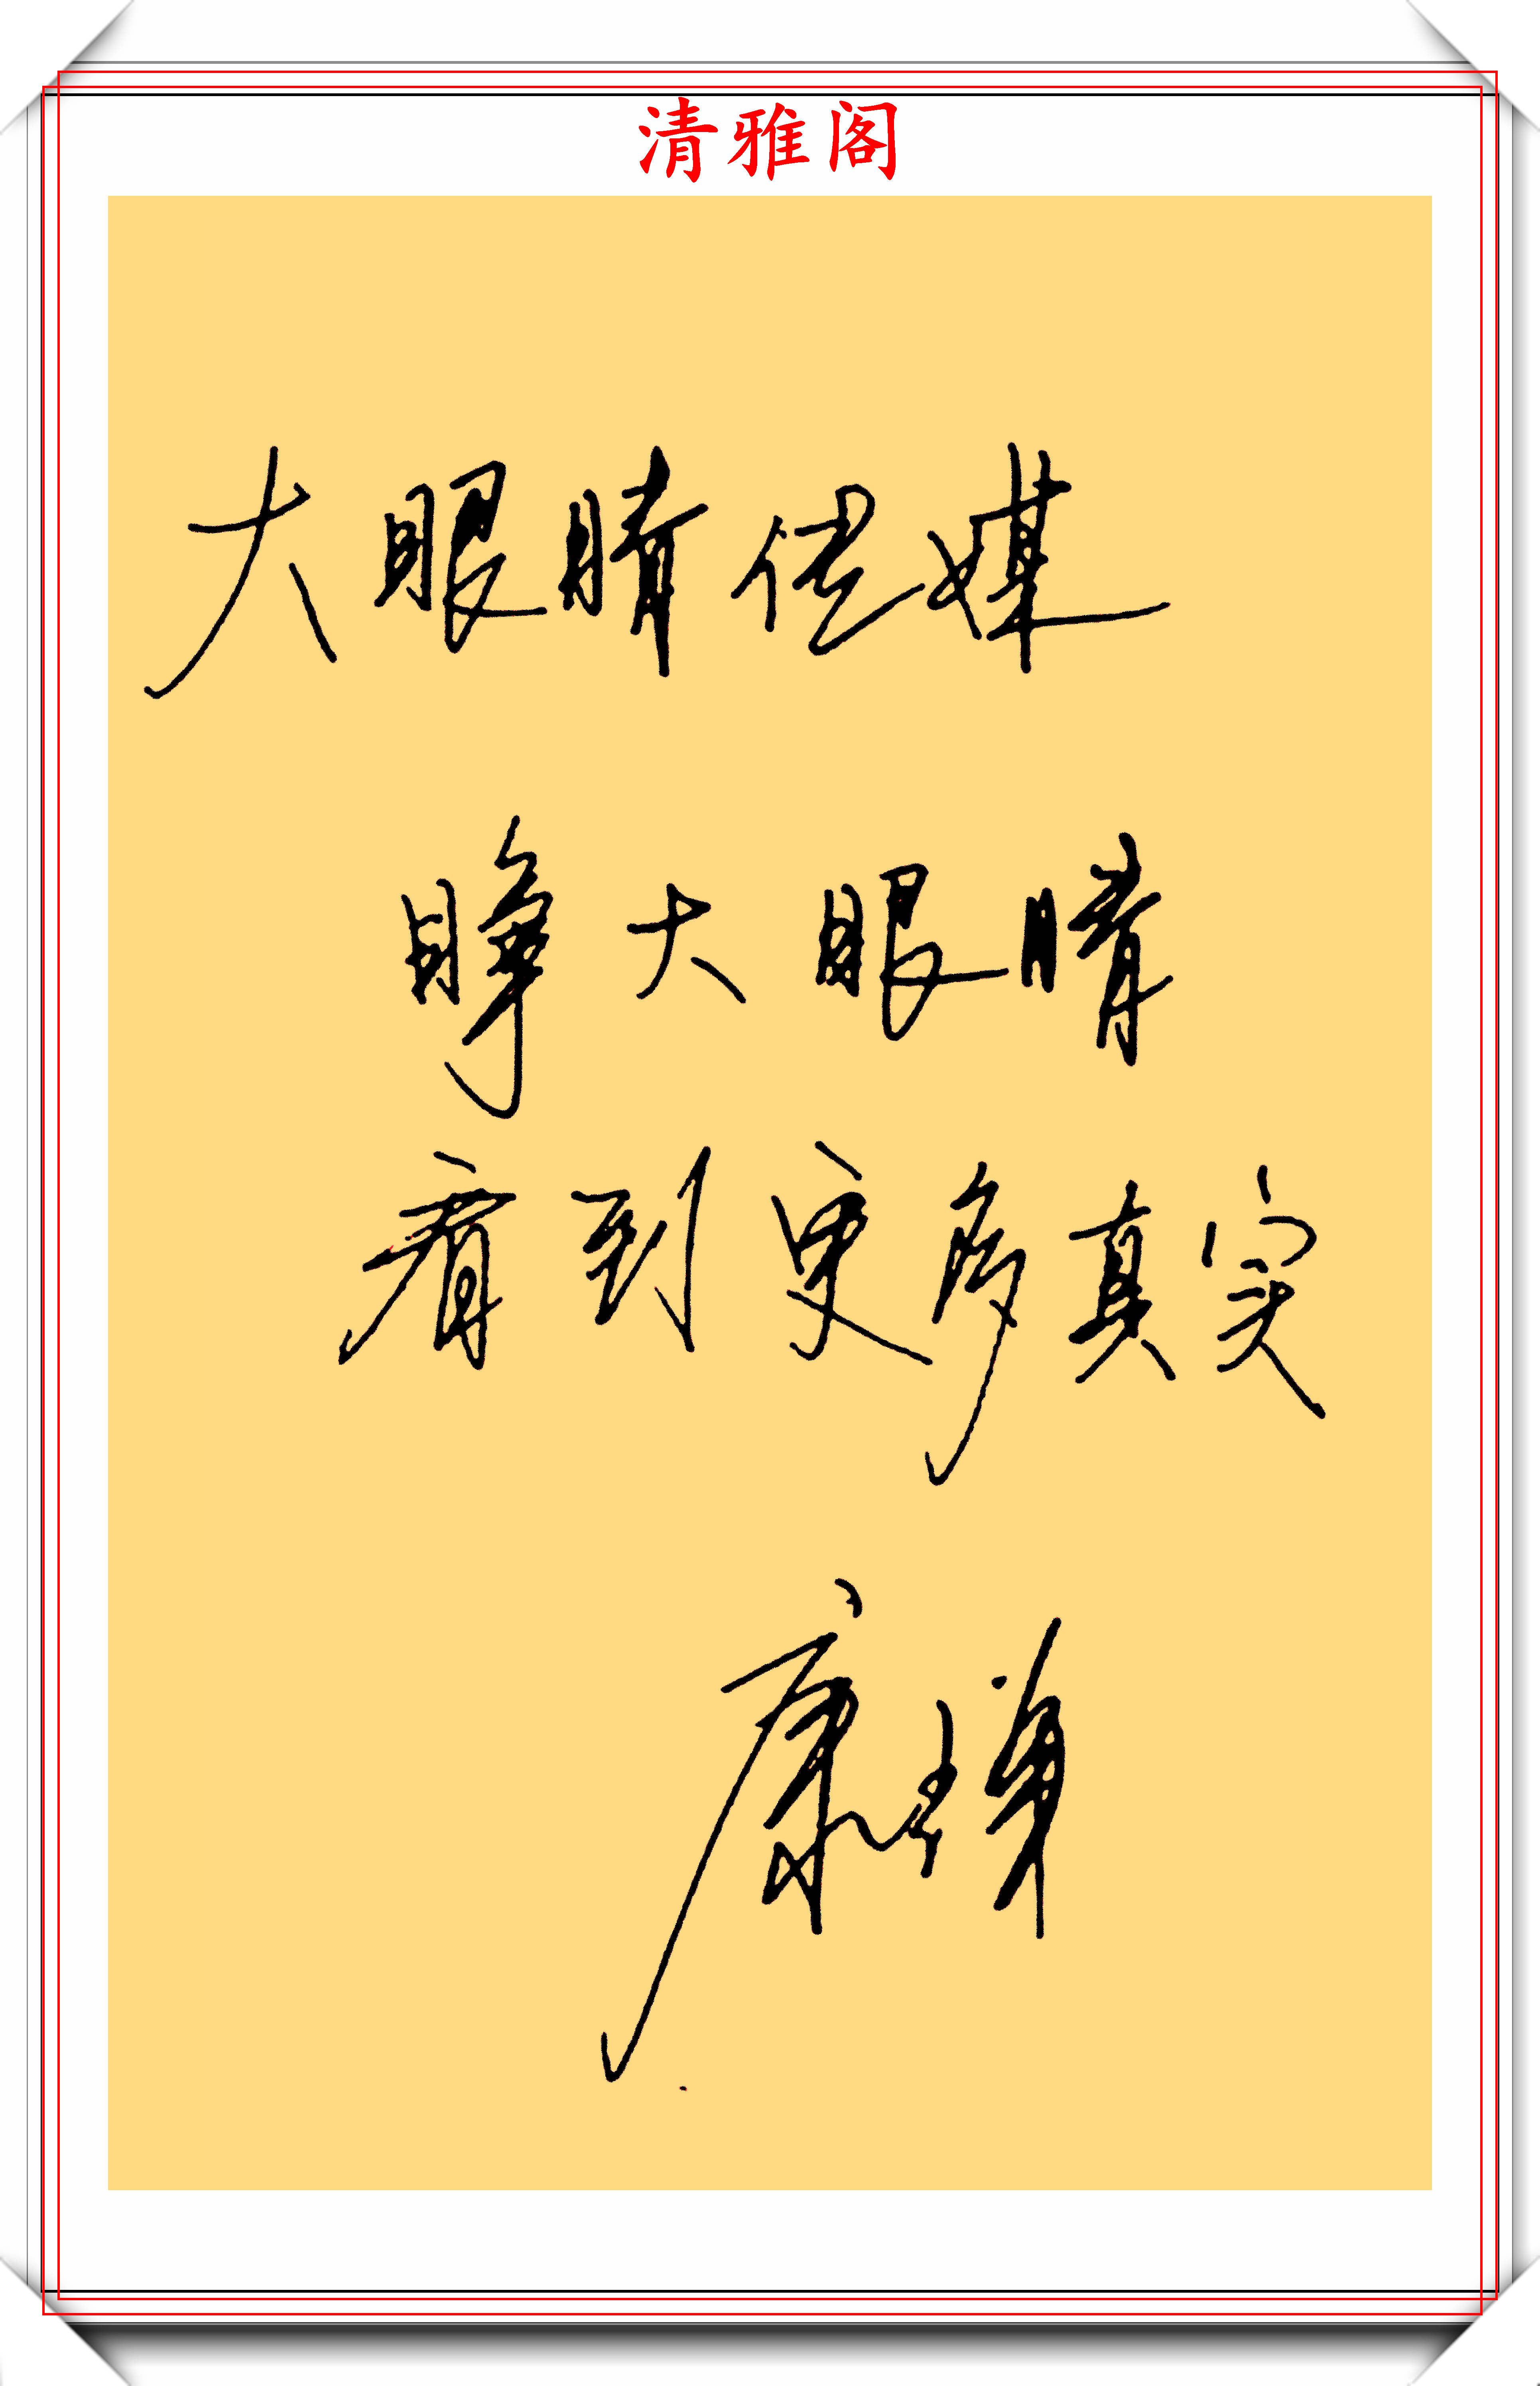 清雅阁
大眼睛传媒
睁大眼睛
看到更多真实
康辉